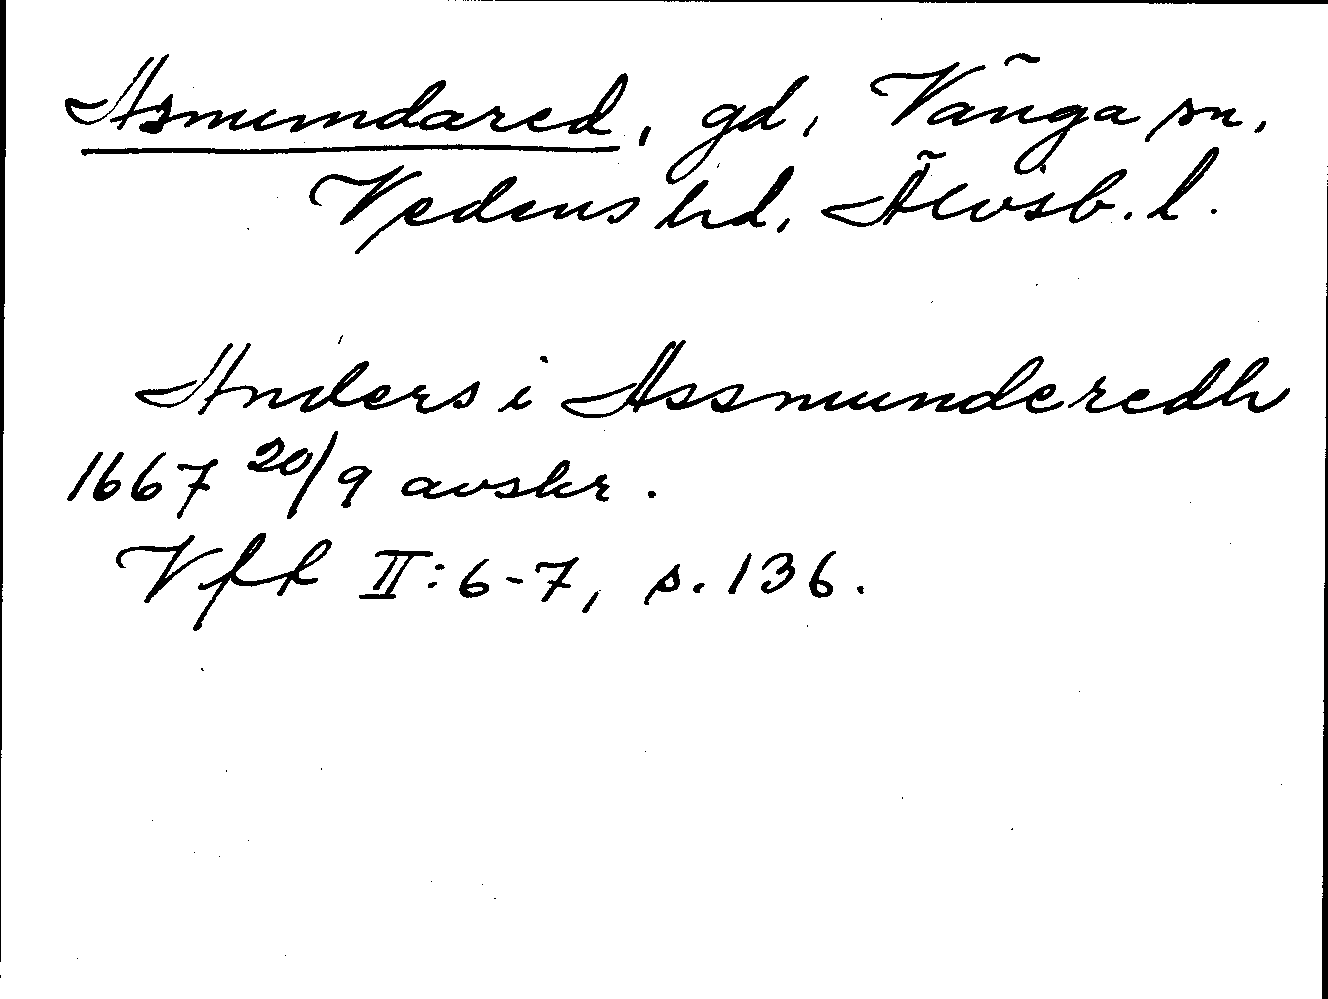 Asmundared, gd, Vänga sn,
Vedens hd, Älvsb. l.
Anders i Assmunderedh
1667 20/9 avskr.
Vff II:6-7, s. 136.